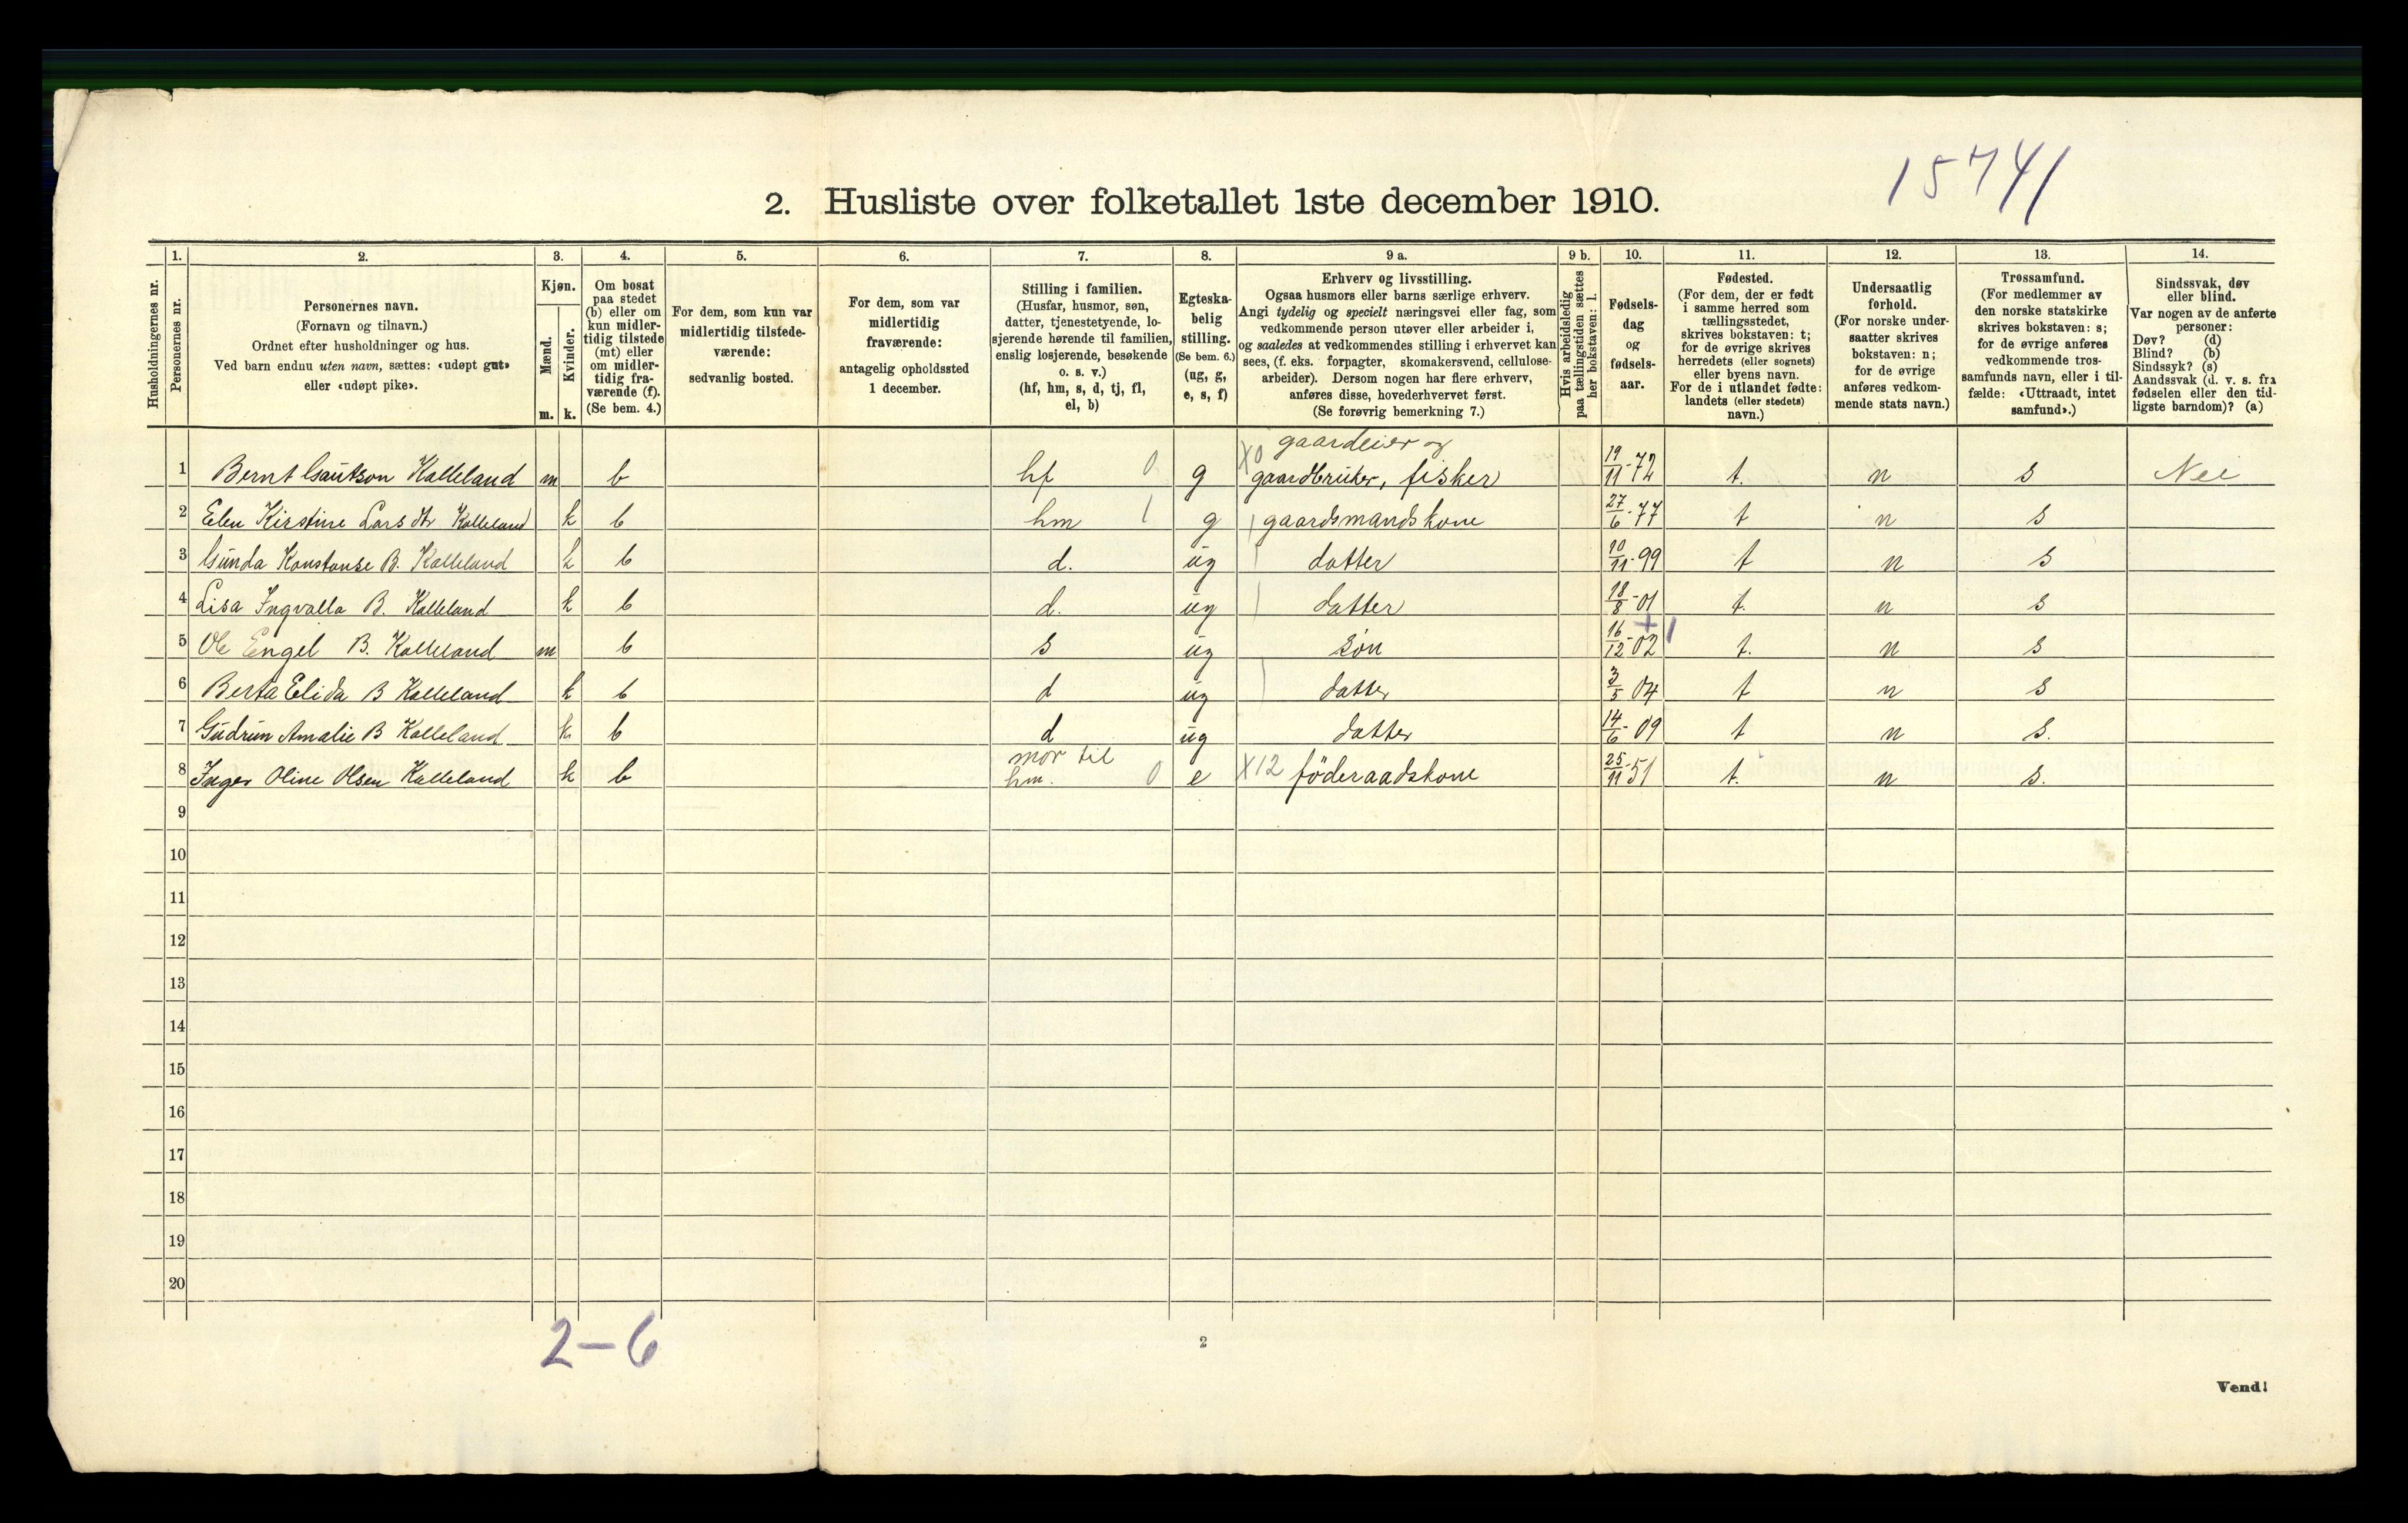 15741
2. Husliste over folketallet 1ste december 1910.
Husholdningernes nr.
1.
Personernes nr.
2.
Personernes navn.
(Fornavn og tilnavn.)
Ordnet efter husholdninger og hus.
Ved barn endnu uten navn, sættes: «udøpt gut»
eller «udøpt pike».
3.
Kjøn.
Mænd.
Kvinder.
m. k.
4.
Om bosat
paa stedet
(b) eller om
kun midler-
tidig tilstede
(mt) eller
om midler-
tidig fra-
værende (f).
(Se bem. 4.)
5.
For dem, som kun var
midlertidig tilstede-
værende:
sedvanlig bosted.
6.
For dem, som var
midlertidig
fraværende:
antagelig opholdssted
1 december.
7.
Stilling i familien.
(Husfar, husmor, søn,
datter, tjenestetyende, lo-
sjerende hørende til familien,
enslig losjerende, besøkende
o. s. v.)
(hf, hm, s, d, tj, fl,
el, b)
8.
Egteska-
belig
stilling.
(Se bem. 6.)
(ug, g,
e, s, f)
9 a.
Erhverv og livsstilling.
Ogsaa husmors eller barns særlige erhverv.
Angi tydelig og specielt næringsvei eller fag, som
vedkommende person utøver eller arbeider i,
og saaledes at vedkommendes stilling i erhvervet kan
sees, (f. eks. forpagter, skomakersvend, cellulose-
arbeider). Dersom nogen har flere erhverv,
anføres disse, hovederhvervet først.
(Se forøvrig bemerkning 7.)
9 b.
Hvis arbeidsledig
paa tællingstiden sættes
her bokstaven: l.
10.
Fødsels-
dag
og
fødsels-
aar.
11.
Fødested.
(For dem, der er født
i samme herred som
tællingsstedet,
skrives bokstaven: t;
for de øvrige skrives
herredets (eller sognets)
eller byens navn.
For de i utlandet fødte:
landets (eller stedets)
navn.)
12.
Undersaatlig
forhold.
(For norske under-
saatter skrives
bokstaven: n;
for de øvrige
anføres vedkom-
mende stats navn.)
13.
Trossamfund.
(For medlemmer av
den norske statskirke
skrives bokstaven: s;
for de øvrige anføres
vedkommende tros-
samfunds navn, eller i til-
fælde: «Uttraadt, intet
samfund».)
14.
Sindssvak, døv
eller blind.
Var nogen av de anførte
personer:
Døv? (d)
Blind? (b)
Sindssyk? (s)
Aandssvak (d. v. s. fra
fødselen eller den tid-
ligste barndom)? (a)
gaardeier og
1 Bernt Gautson Kalleland m b hf 0 g X0 gaardbruker, fisker 19/11-72 t. n s Nei
2 Elen Kirstine Lars dtr Kalleland k b hm 1 g gaardsmandskone 27/6-77 t n s
3 Gunda Konstanse B. Kalleland k b d. ug datter 10/11-99 t n s
4 Lisa Ingvalla B. Kalleland k b d. ug datter 18/8-01 t. n s
5 Ole Engel B. Kalleland m b s ug søn 16/12-02 t. n s
6 Berta Elida B Kalleland k b d ug datter 3/5-04 t n s
7 Gudrun Amalie B Kalleland k b d ug datter 14/6-09 t n s.
mor til
8 Inger Oline Olsen Kalleland k b hm. 0 e X12 föderaadskone 25/11-51 t. n s.
9
10
11
12
13
14
15
16
17
18
19
20
2-6
2
Vend!